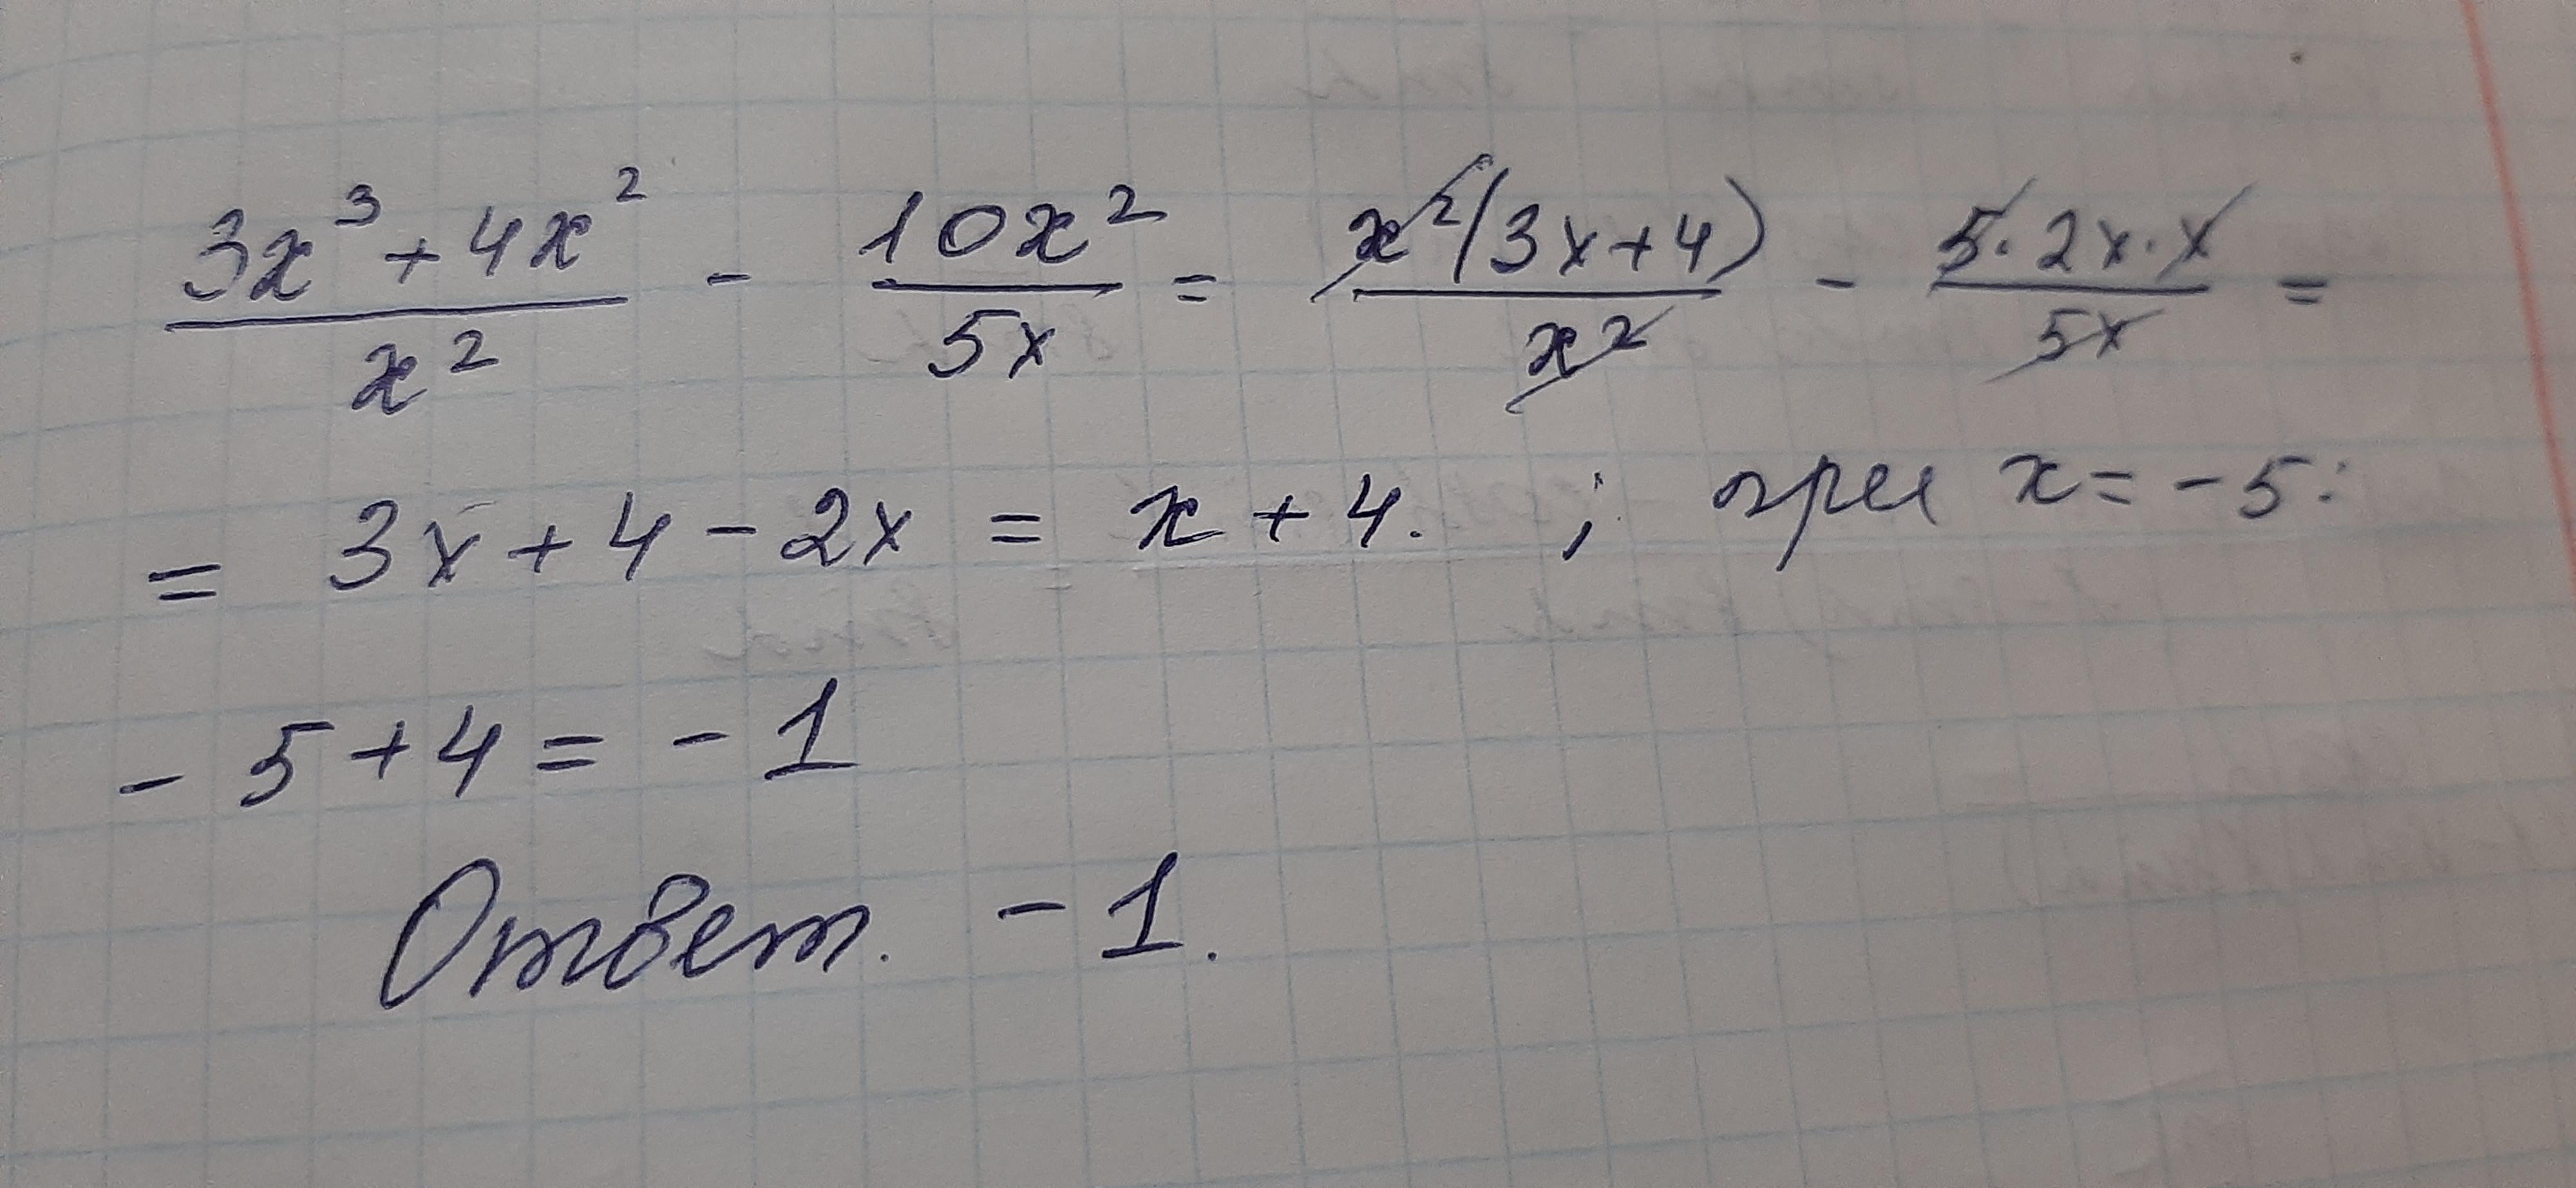 (3x³+4x²)/x² - 10x²/5x = x²(3x+4)/x² - 5·2x·x/5x =
= 3x+4-2x = x+4. ; при x=-5:
-5+4=-1
Ответ. -1.